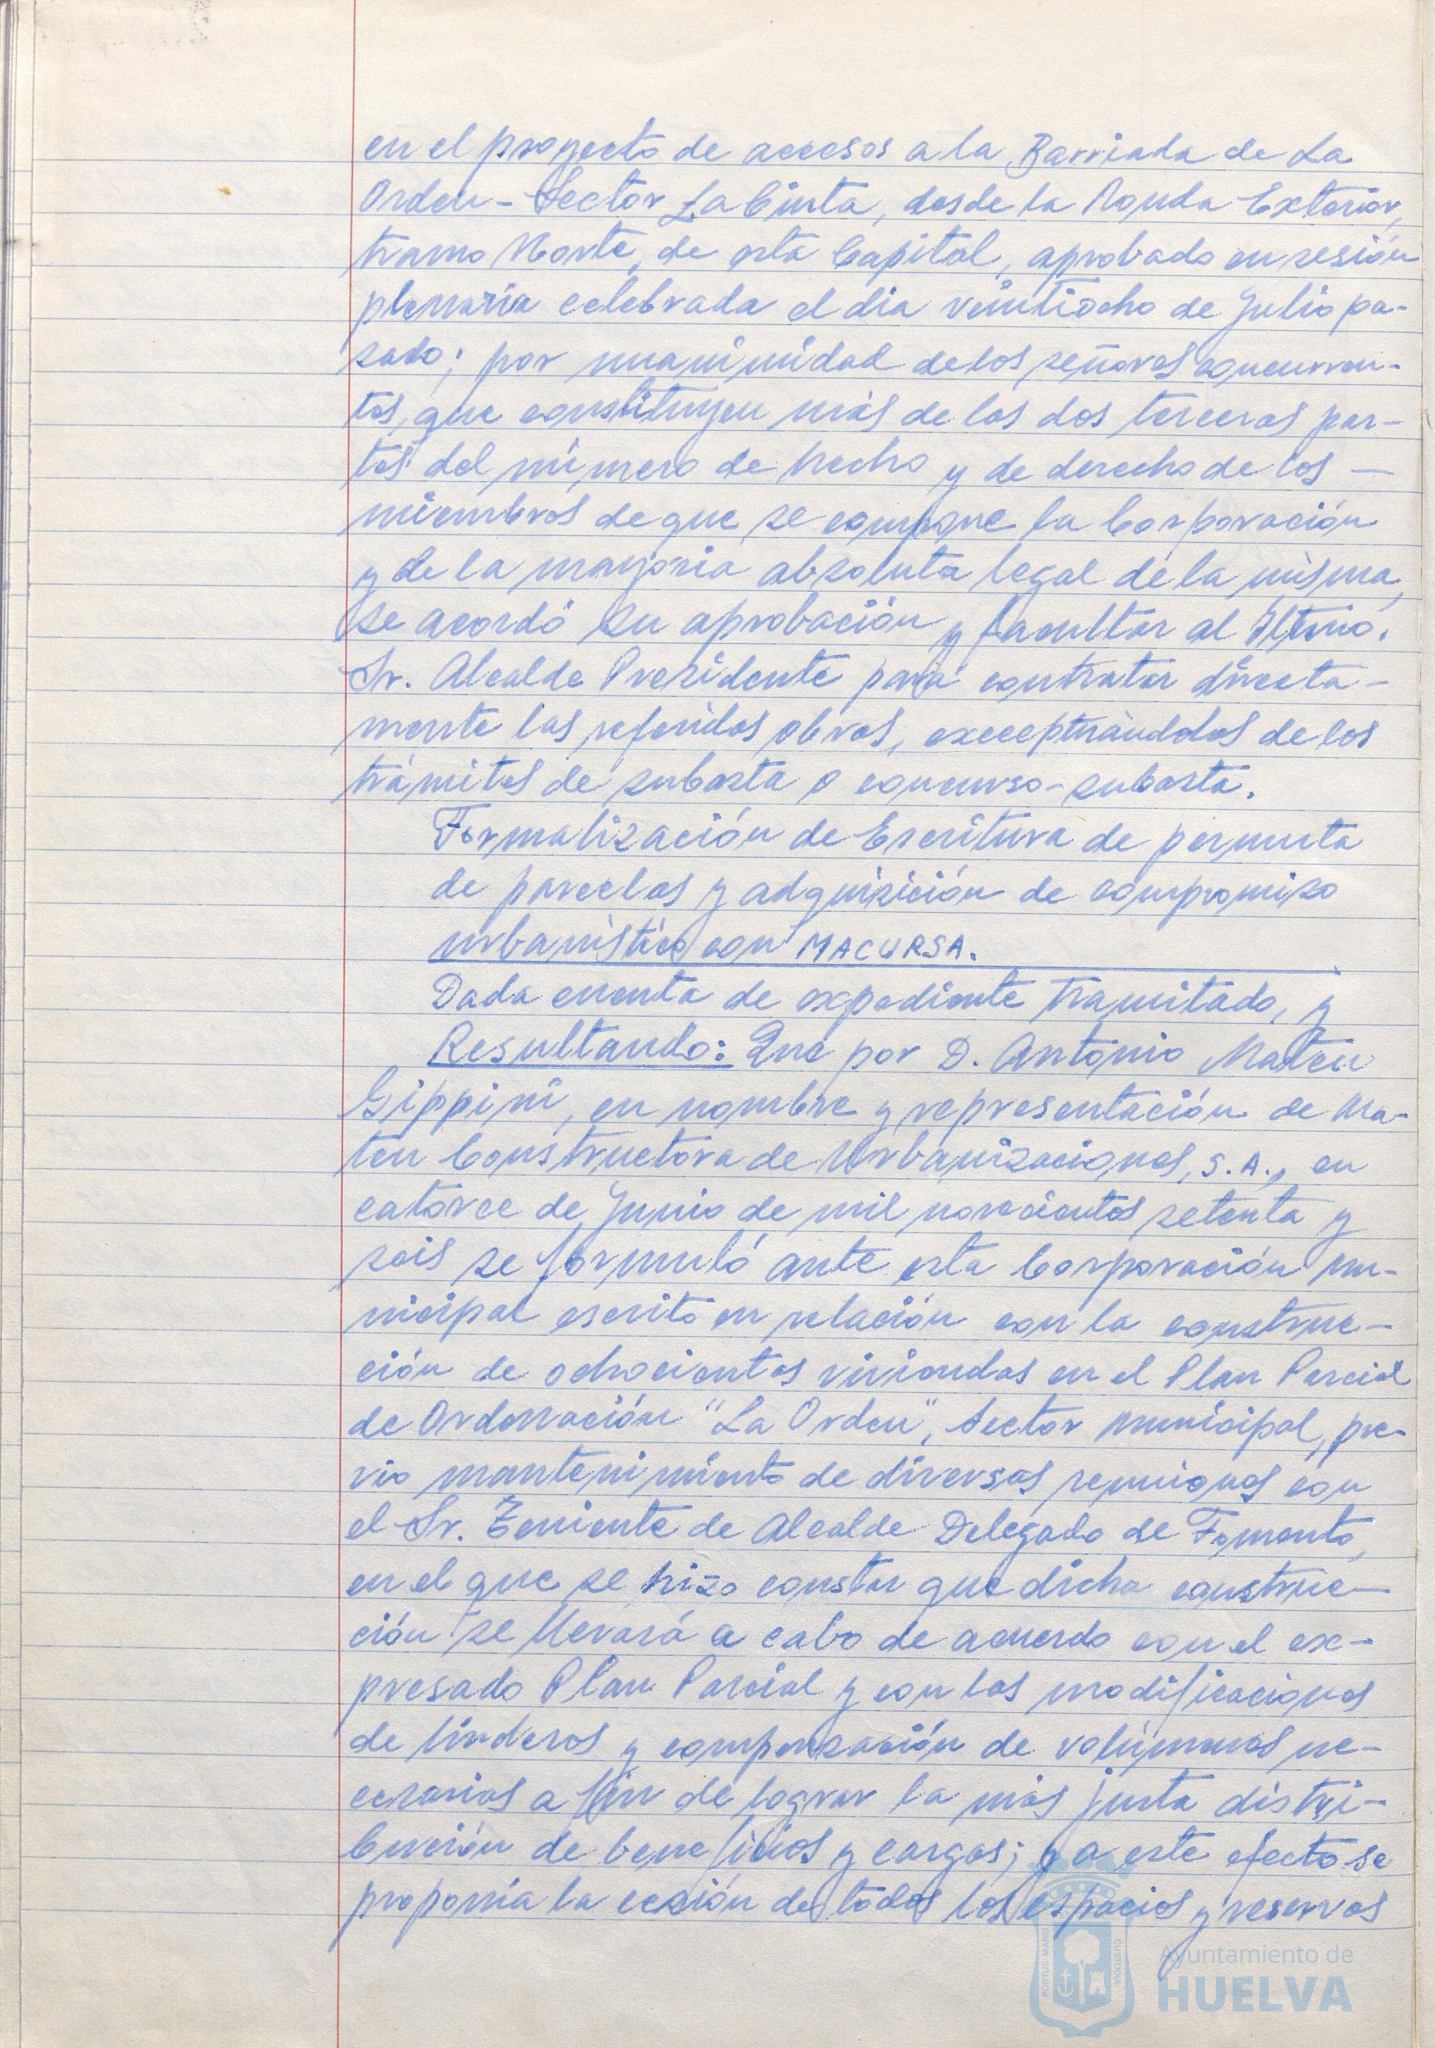 en el proyecto de accesos a la Barriada de La
Orden-Sector La Cinta, desde la Ronda Exterior,
tramo Norte, de esta Capital, aprobado en sesión
plenaria celebrada el dia veintiocho de Julio pa-
sado; por unanimidad de los señores concurren-
tes, que constituyen más de las dos terceras par-
tes del número de hecho y de derecho de los -
miembros de que se compone la Corporación
y de la mayoria absoluta legal de la misma,
se acordó su aprobación y facultar al Iltmo.
Sr. Alcalde Presidente para contratar directa-
mente las referidas obras, exceptuándolas de los
trámites de subasta o concurso-subasta.
Formalización de Escritura de permuta
de parcelas y adquisición de compromiso
urbanístico con MACURSA.
Dada cuenta de expediente tramitado, y
Resultando: Que por D. Antonio Mateu
Gippini, en nombre y representación de Ma-
teu Constructora de Urbanizaciones, S.A., en
catorce de Junio de mil novecientos setenta y
seis se formuló ante esta Corporación mu-
nicipal escrito en relación con la construc-
ción de ochocientas viviendas en el Plan Parcial
de Ordenación "La Orden", Sector Municipal, pre-
vio mantenimiento de diversas reuniones con
el Sr. Teniente de Alcalde Delegado de Fomento,
en el que se hizo constar que dicha construc-
ción se llevará a cabo de acuerdo con el ex-
presado Plan Parcial y con las modificaciones
de linderos y compensación de volúmenes ne-
cesarias a fin de lograr la más justa distri-
bución de beneficios y cargas; y a este efecto se
proponía la cesión de todos los espacios y reservas
PORTUS MARIS CUSTODIA
Ayuntamiento de
HUELVA